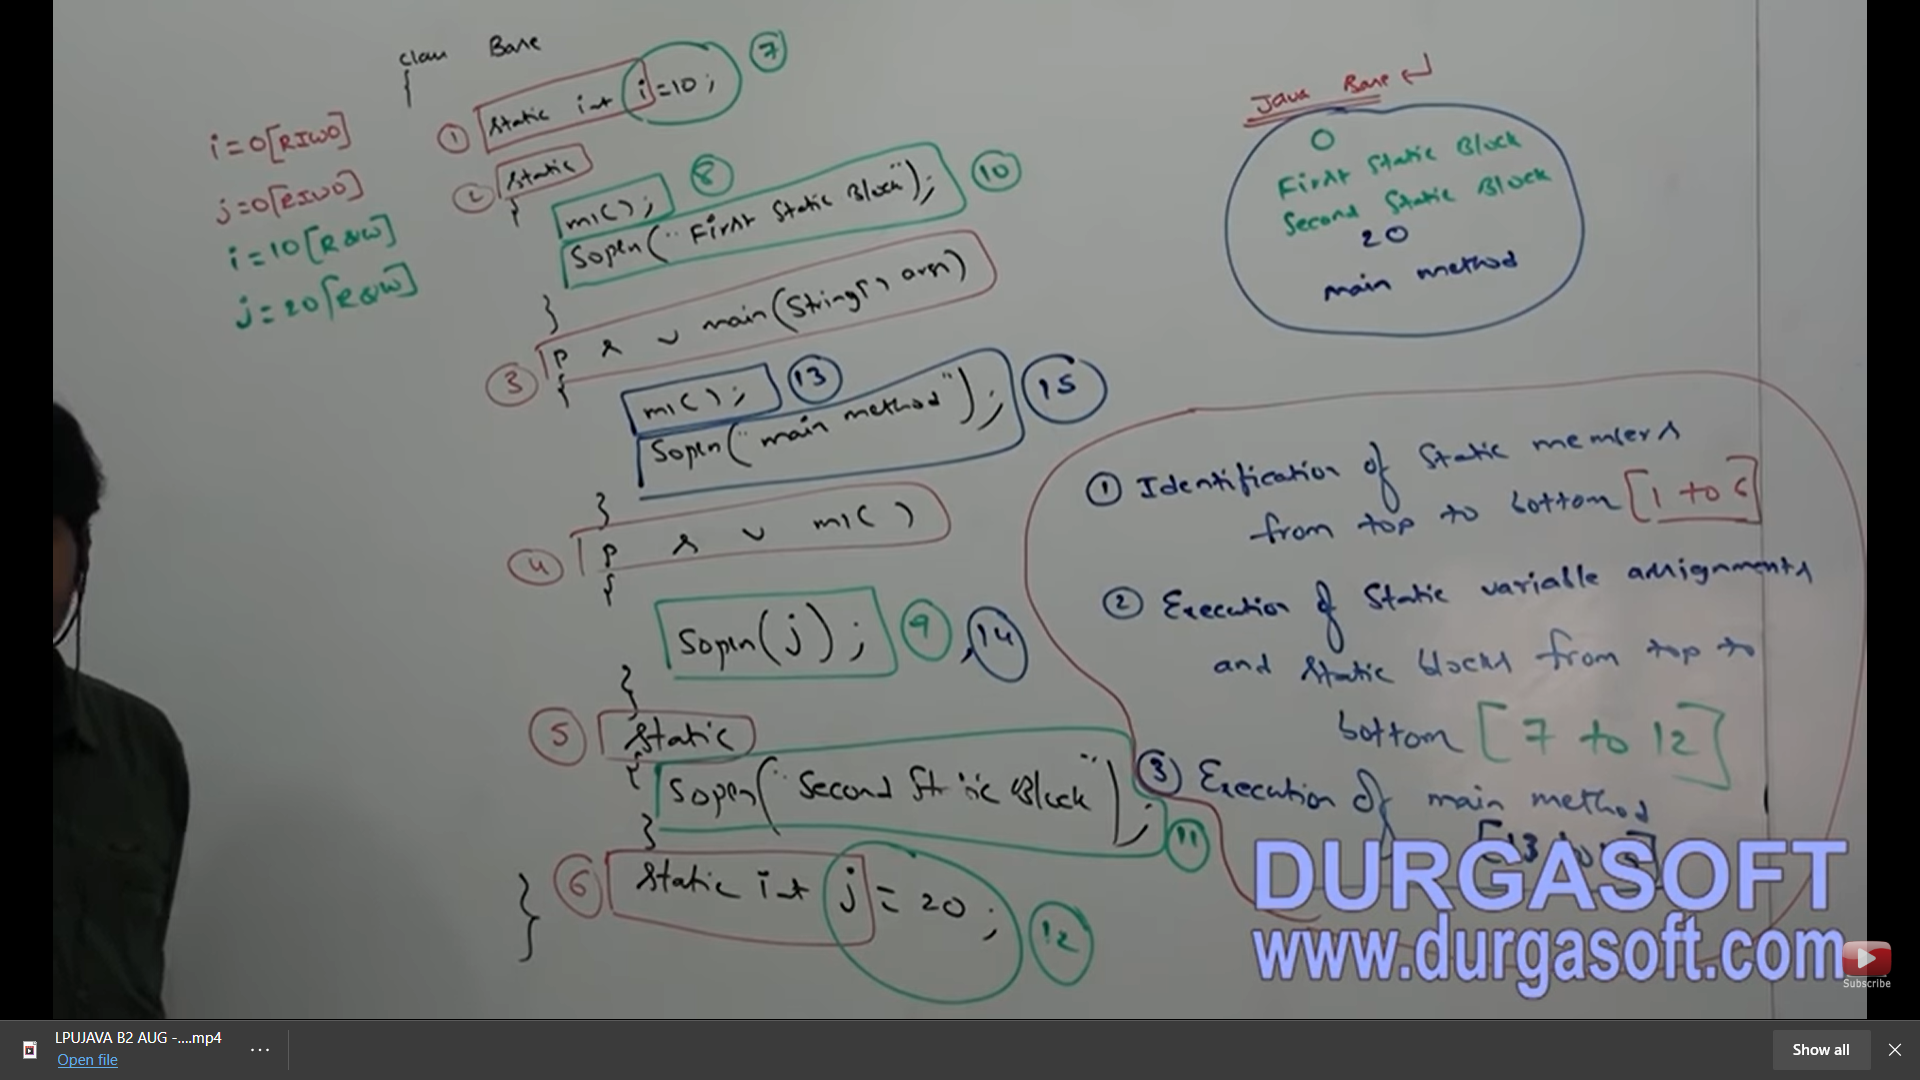 class Base
{
① static int i=10; ⑦
i=0[RIWO]
② static
j=0[RIWO]
{
m1(); ⑧
Sopln("First Static Block"); ⑩
i=10[R&W]
j=20[R&W]
}
③ p s v main(String[] args)
{
m1(); ⑬
Sopln("main method"); ⑮
}
④ p s v m1()
{
Sopln(j); ⑨, ⑭
}
⑤ static
{
Sopln("Second Static Block"); ⑪
}
⑥ static int j=20; ⑫
}
Java Base ↵
0
First Static Block
Second Static Block
20
main method
① Identification of static members
from top to bottom [1 to 6]
② Execution of static variable assignments
and static blocks from top to
bottom [7 to 12]
③ Execution of main method
DURGASOFT
www.durgasoft.com
Subscribe
LPUJAVA B2 AUG -....mp4
Open file
...
Show all